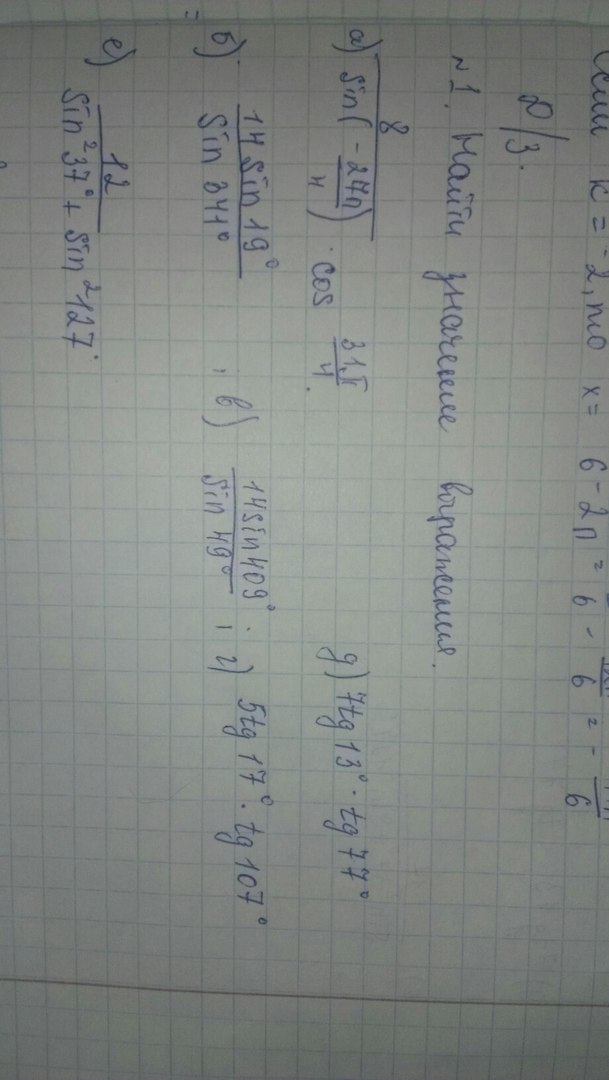 если k = -2, то x = 6 - 2π = 6 -
D/З.
~1. Найти значение выражения.
а) 8 / sin(-27π/4) · cos 31π/4.
д) 7tg13° · tg77°
б) 14 sin 19° / sin 341° ; в) 14sin409° / sin 49° ; г) 5tg17° · tg107°
=
е) 12 / sin²37° + sin²127°.